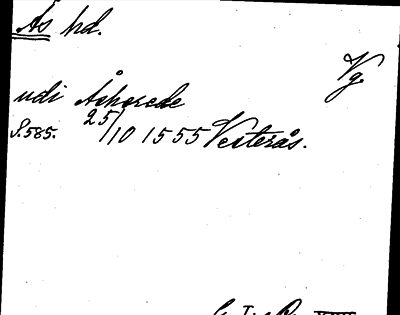 Ås hd.
Vg.
udi Åsherede
S. 585. 25/10 1555 Vesterås.